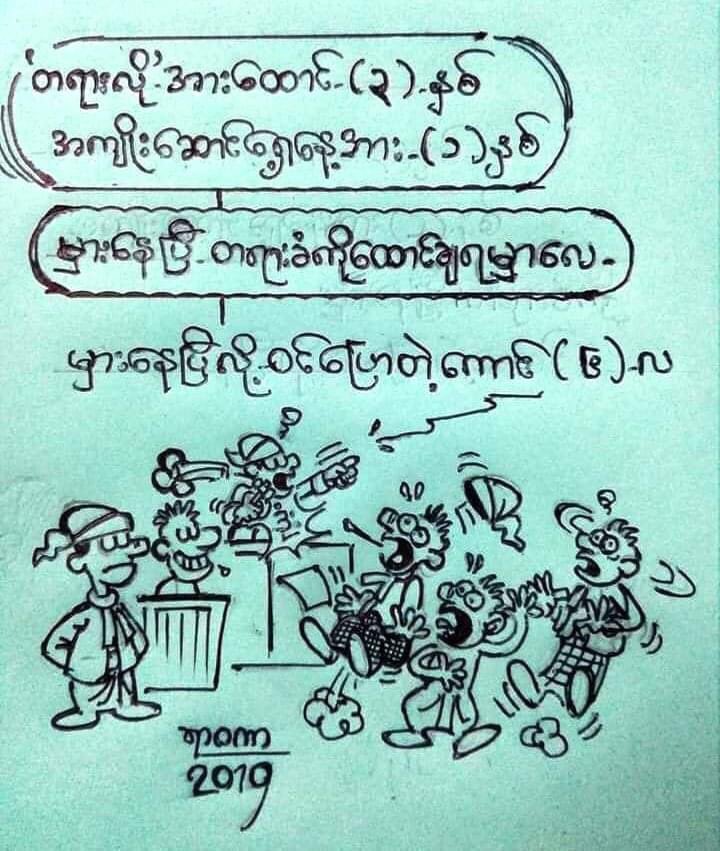 'တရားလို' အားထောင်-(၃)-နှစ်
အကျိုးဆောင်ရှေ့နေ့အား-(၁)နှစ်
မှားနေပြီ-တရားခံကိုထောင်ချရမှာလေ-
မှားနေပြီလို့-ဝင်ပြောတဲ့ကောင် (၆)-လ
2019